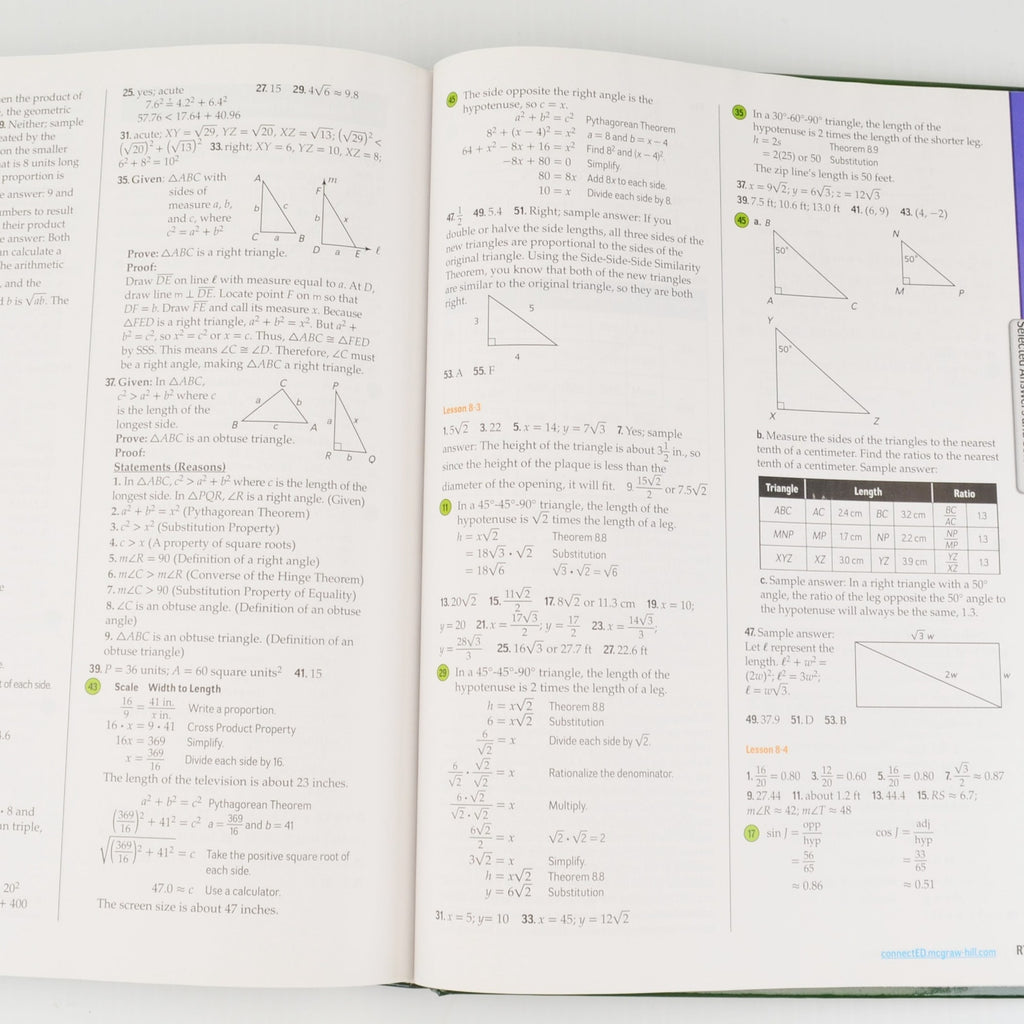 en the product of
, the geometric
9. Neither; sample
eated by the
on the smaller
at is 8 units long
proportion is
e answer: 9 and
mbers to result
their product
e answer: Both
n calculate a
he arithmetic
, and the
b is √ab. The
t of each side.
4.6
• 8 and
n triple,
20²
+ 400
25. yes; acute 27. 15 29. 4√6 ≈ 9.8
7.6² ≟ 4.2² + 6.4²
57.76 < 17.64 + 40.96
31. acute; XY = √29, YZ = √20, XZ = √13; (√29)² <
(√20)² + (√13)² 33. right; XY = 6, YZ = 10, XZ = 8;
6² + 8² = 10²
35. Given: △ABC with
sides of
measure a, b,
and c, where
c² = a² + b²
A b c C a B
m F b x D a E ℓ
Prove: △ABC is a right triangle.
Proof:
Draw DE on line ℓ with measure equal to a. At D,
draw line m ⊥ DE. Locate point F on m so that
DF = b. Draw FE and call its measure x. Because
△FED is a right triangle, a² + b² = x². But a² +
b² = c², so x² = c² or x = c. Thus, △ABC ≅ △FED
by SSS. This means ∠C ≅ ∠D. Therefore, ∠C must
be a right angle, making △ABC a right triangle.
37. Given: In △ABC,
c² > a² + b² where c
is the length of the
longest side.
C a b B c A
P a x R b Q
Prove: △ABC is an obtuse triangle.
Proof:
Statements (Reasons)
1. In △ABC, c² > a² + b² where c is the length of the
longest side. In △PQR, ∠R is a right angle. (Given)
2. a² + b² = x² (Pythagorean Theorem)
3. c² > x² (Substitution Property)
4. c > x (A property of square roots)
5. m∠R = 90 (Definition of a right angle)
6. m∠C > m∠R (Converse of the Hinge Theorem)
7. m∠C > 90 (Substitution Property of Equality)
8. ∠C is an obtuse angle. (Definition of an obtuse
angle)
9. △ABC is an obtuse triangle. (Definition of an
obtuse triangle)
39. P = 36 units; A = 60 square units² 41. 15
43 Scale Width to Length
16/9 = 41 in./x in. Write a proportion.
16 • x = 9 • 41 Cross Product Property
16x = 369 Simplify.
x = 369/16 Divide each side by 16.
The length of the television is about 23 inches.
a² + b² = c² Pythagorean Theorem
(369/16)² + 41² = c² a = 369/16 and b = 41
√((369/16)² + 41²) = c Take the positive square root of
each side.
47.0 ≈ c Use a calculator.
The screen size is about 47 inches.
45 The side opposite the right angle is the
hypotenuse, so c = x.
a² + b² = c² Pythagorean Theorem
8² + (x − 4)² = x² a = 8 and b = x − 4
64 + x² − 8x + 16 = x² Find 8² and (x − 4)².
−8x + 80 = 0 Simplify.
80 = 8x Add 8x to each side.
10 = x Divide each side by 8.
47. 1/2 49. 5.4 51. Right; sample answer: If you
double or halve the side lengths, all three sides of the
new triangles are proportional to the sides of the
original triangle. Using the Side-Side-Side Similarity
Theorem, you know that both of the new triangles
are similar to the original triangle, so they are both
right.
3 5 4
53. A 55. F
Lesson 8-3
1. 5√2 3. 22 5. x = 14; y = 7√3 7. Yes; sample
answer: The height of the triangle is about 3 1/2 in., so
since the height of the plaque is less than the
diameter of the opening, it will fit. 9. 15√2/2 or 7.5√2
11 In a 45°-45°-90° triangle, the length of the
hypotenuse is √2 times the length of a leg.
h = x√2 Theorem 8.8
= 18√3 • √2 Substitution
= 18√6 √3 • √2 = √6
13. 20√2 15. 11√2/2 17. 8√2 or 11.3 cm 19. x = 10;
y = 20 21. x = 17√3/2; y = 17/2 23. x = 14√3/3;
y = 28√3/3 25. 16√3 or 27.7 ft 27. 22.6 ft
29 In a 45°-45°-90° triangle, the length of the
hypotenuse is 2 times the length of a leg.
h = x√2 Theorem 8.8
6 = x√2 Substitution
6/√2 = x Divide each side by √2.
6/√2 • √2/√2 = x Rationalize the denominator.
6 • √2/√2 • √2 = x Multiply.
6√2/2 = x √2 • √2 = 2
3√2 = x Simplify.
h = x√2 Theorem 8.8
y = 6√2 Substitution
31. x = 5; y = 10 33. x = 45; y = 12√2
35 In a 30°-60°-90° triangle, the length of the
hypotenuse is 2 times the length of the shorter leg.
h = 2s Theorem 8.9
= 2(25) or 50 Substitution
The zip line's length is 50 feet.
37. x = 9√2; y = 6√3; z = 12√3
39. 7.5 ft; 10.6 ft; 13.0 ft 41. (6, 9) 43. (4, −2)
45 a. B
50° A C
N 50° M P
Y 50° X Z
b. Measure the sides of the triangles to the nearest
tenth of a centimeter. Find the ratios to the nearest
tenth of a centimeter. Sample answer:
Triangle Length Ratio
ABC AC 2.4 cm BC 3.2 cm BC/AC 1.3
MNP MP 1.7 cm NP 2.2 cm NP/MP 1.3
XYZ XZ 3.0 cm YZ 3.9 cm YZ/XZ 1.3
c. Sample answer: In a right triangle with a 50°
angle, the ratio of the leg opposite the 50° angle to
the hypotenuse will always be the same, 1.3.
47. Sample answer:
Let ℓ represent the
length. ℓ² + w² =
(2w)²; ℓ² = 3w²;
ℓ = w√3.
√3 w 2w w
49. 37.9 51. D 53. B
Lesson 8-4
1. 16/20 = 0.80 3. 12/20 = 0.60 5. 16/20 = 0.80 7. √3/2 ≈ 0.87
9. 27.44 11. about 1.2 ft 13. 44.4 15. RS ≈ 6.7;
m∠R ≈ 42; m∠T ≈ 48
17 sin J = opp/hyp cos J = adj/hyp
= 56/65 = 33/65
≈ 0.86 ≈ 0.51
connectED.mcgraw-hill.com
Selected Answers and